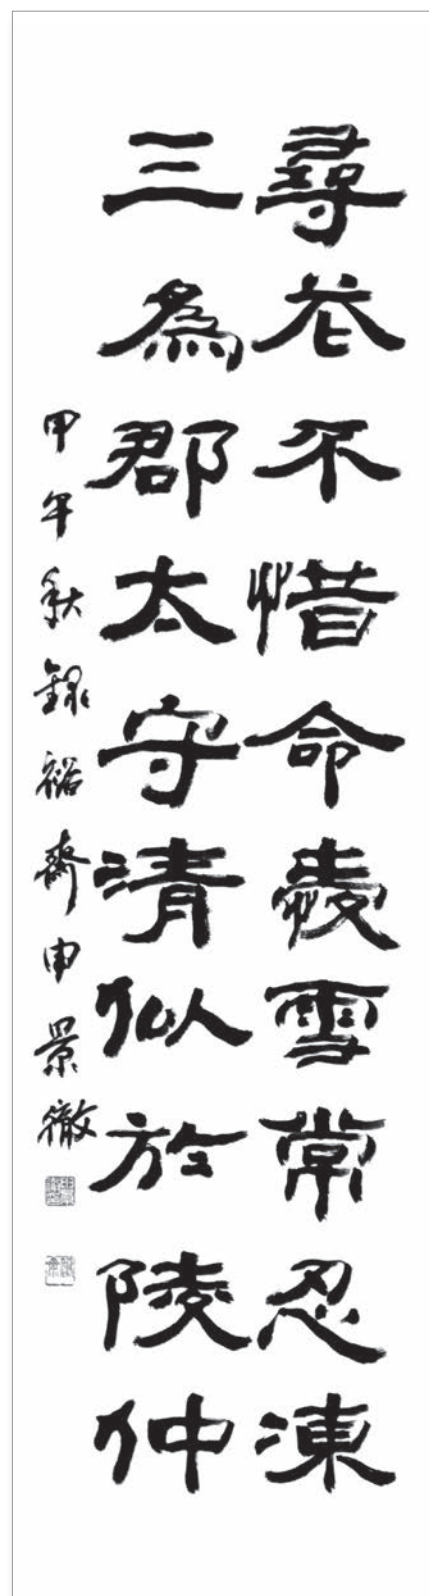 尋花不惜命愛雪常忍凍
三為郡太守清似於陵仲
甲午秋錄裕齋申景徹